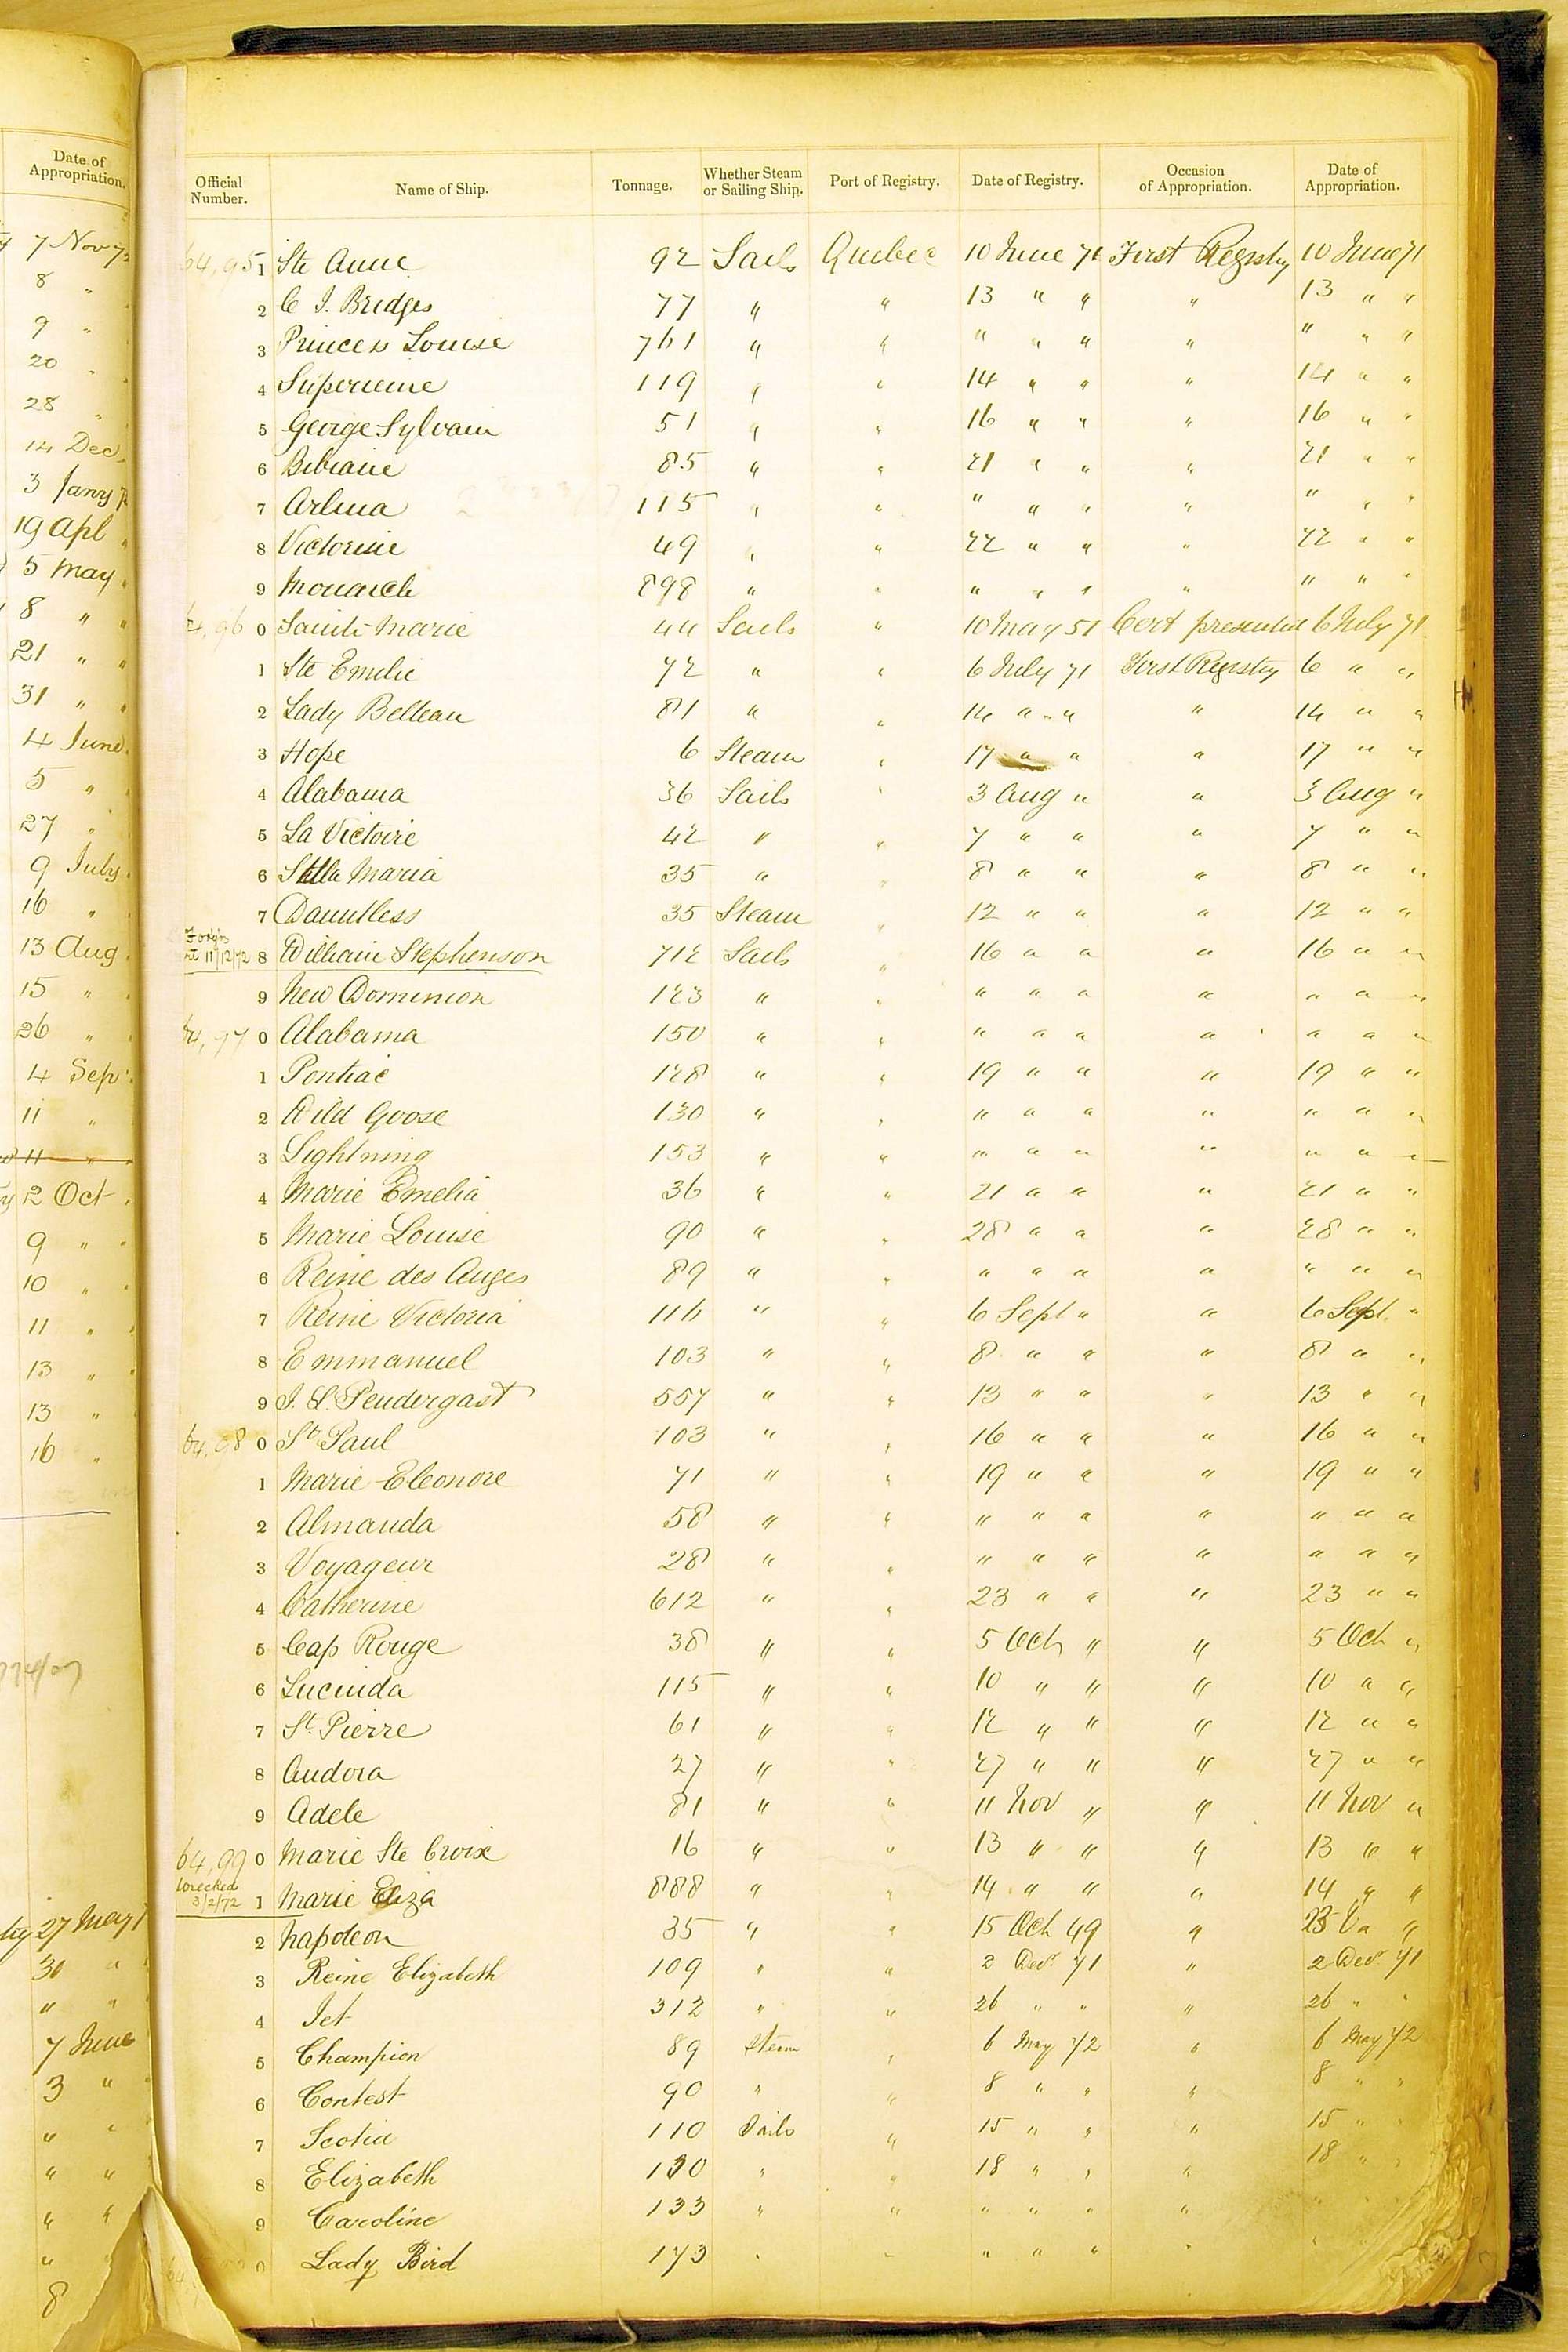 Date of Appropriation.
7 Nov 7
8 "
9 "
20 "
28 "
14 Dec
3 Jany 7
19 Apl "
5 May "
8 " "
21 " "
31 " "
4 June
5 "
27 "
9 July
16 "
13 Aug
15 "
26 "
4 Sep
11 "
11 "
2 Oct
9 " "
10 "
11 "
13 "
13 "
16 "
27 May
30 "
" "
7 June
3 "
" "
" "
" "
"
8
Official Number. Name of Ship. Tonnage. Whether Steam or Sailing Ship. Port of Registry. Date of Registry. Occasion of Appropriation. Date of Appropriation.
64,951 Ste Anne 92 Sails Quebec 10 June 71 First Registry 10 June 71
2 C J. Bridges 77 " " 13 " " " 13 " "
3 Princess Louise 761 " " " " " " " " "
4 119 " " 14 " " " 14 " "
5 George Sylvain 51 " " 16 " " " 16 " "
6 Bibiane 85 " " 21 " " " 21 " "
7 Arlina 115 " " " " " " " " "
8 Victorine 49 " " 22 " " " 22 " "
9 Monarch 898 " " " " " " " " "
64,96 0 Sainte Marie 44 Sails " 10 May 51 Cert presented 6 July 71
1 Ste Emelie 72 " " 6 July 71 First Registry 6 " "
2 Lady Belleau 81 " " 14 " " " 14 " "
3 Hope 6 Steam " 17 " " " 17 " "
4 Alabama 36 Sails " 3 Aug " " 3 Aug "
5 La Victoire 42 " " 7 " " " 7 " "
6 Stella Maria 35 " " 8 " " " 8 " "
7 Dauntless 35 Steam " 12 " " " 12 " "
11/12/72 8 William Stephenson 712 Sails " 16 " " " 16 " "
9 New Dominion 123 " " " " " " " " "
64,97 0 Alabama 150 " " " " " " " " "
1 Pontiac 128 " " 19 " " " 19 " "
2 Wild Goose 130 " " " " " " " " "
3 Lightning 153 " " " " " " " " "
4 Marie Emelia 36 " " 21 " " " 21 " "
5 Marie Louise 90 " " 28 " " " 28 " "
6 Reine des Anges 89 " " " " " " " " "
7 Reine Victoria 116 " " 6 Sept " " 6 Sept. "
8 Emmanuel 103 " " 8 " " " 8 " "
9 J. L. Pendergast 557 " " 13 " " " 13 " "
64,98 0 St Paul 103 " " 16 " " " 16 " "
1 Marie Eleonore 71 " " 19 " " " 19 " "
2 Almanda 58 " " " " " " " " "
3 Voyageur 28 " " " " " " " " "
4 Catherine 612 " " 23 " " " 23 " "
5 Cap Rouge 38 " " 5 Oct " " 5 Oct "
6 Lucinda 115 " " 10 " " " 10 " "
7 St. Pierre 61 " " 12 " " " 12 " "
8 Andora 27 " " 27 " " " 27 " "
9 Adele 81 " " 11 Nov " " 11 Nov "
64,99 0 Marie Ste Croix 16 " " 13 " " " 13 " "
Wrecked 3/2/72 1 Marie Eliza 888 " " 14 " " " 14 " "
2 Napoleon 35 " " 15 Oct 49 " 23 "
3 Reine Elizabeth 109 " " 2 Decr 71 " 2 Decr 71
4 Jet 312 " " 26 " " " 26 " "
5 Champion 89 Steam " 6 May 72 " 6 May 72
6 Contest 90 " " 8 " " " 8 " "
7 Scotia 110 Sails " 15 " " " 15 " "
8 Elizabeth 130 " " 18 " " " 18 " "
9 Caroline 133 " " " " " "
0 Lady Bird 173 " " " " " "